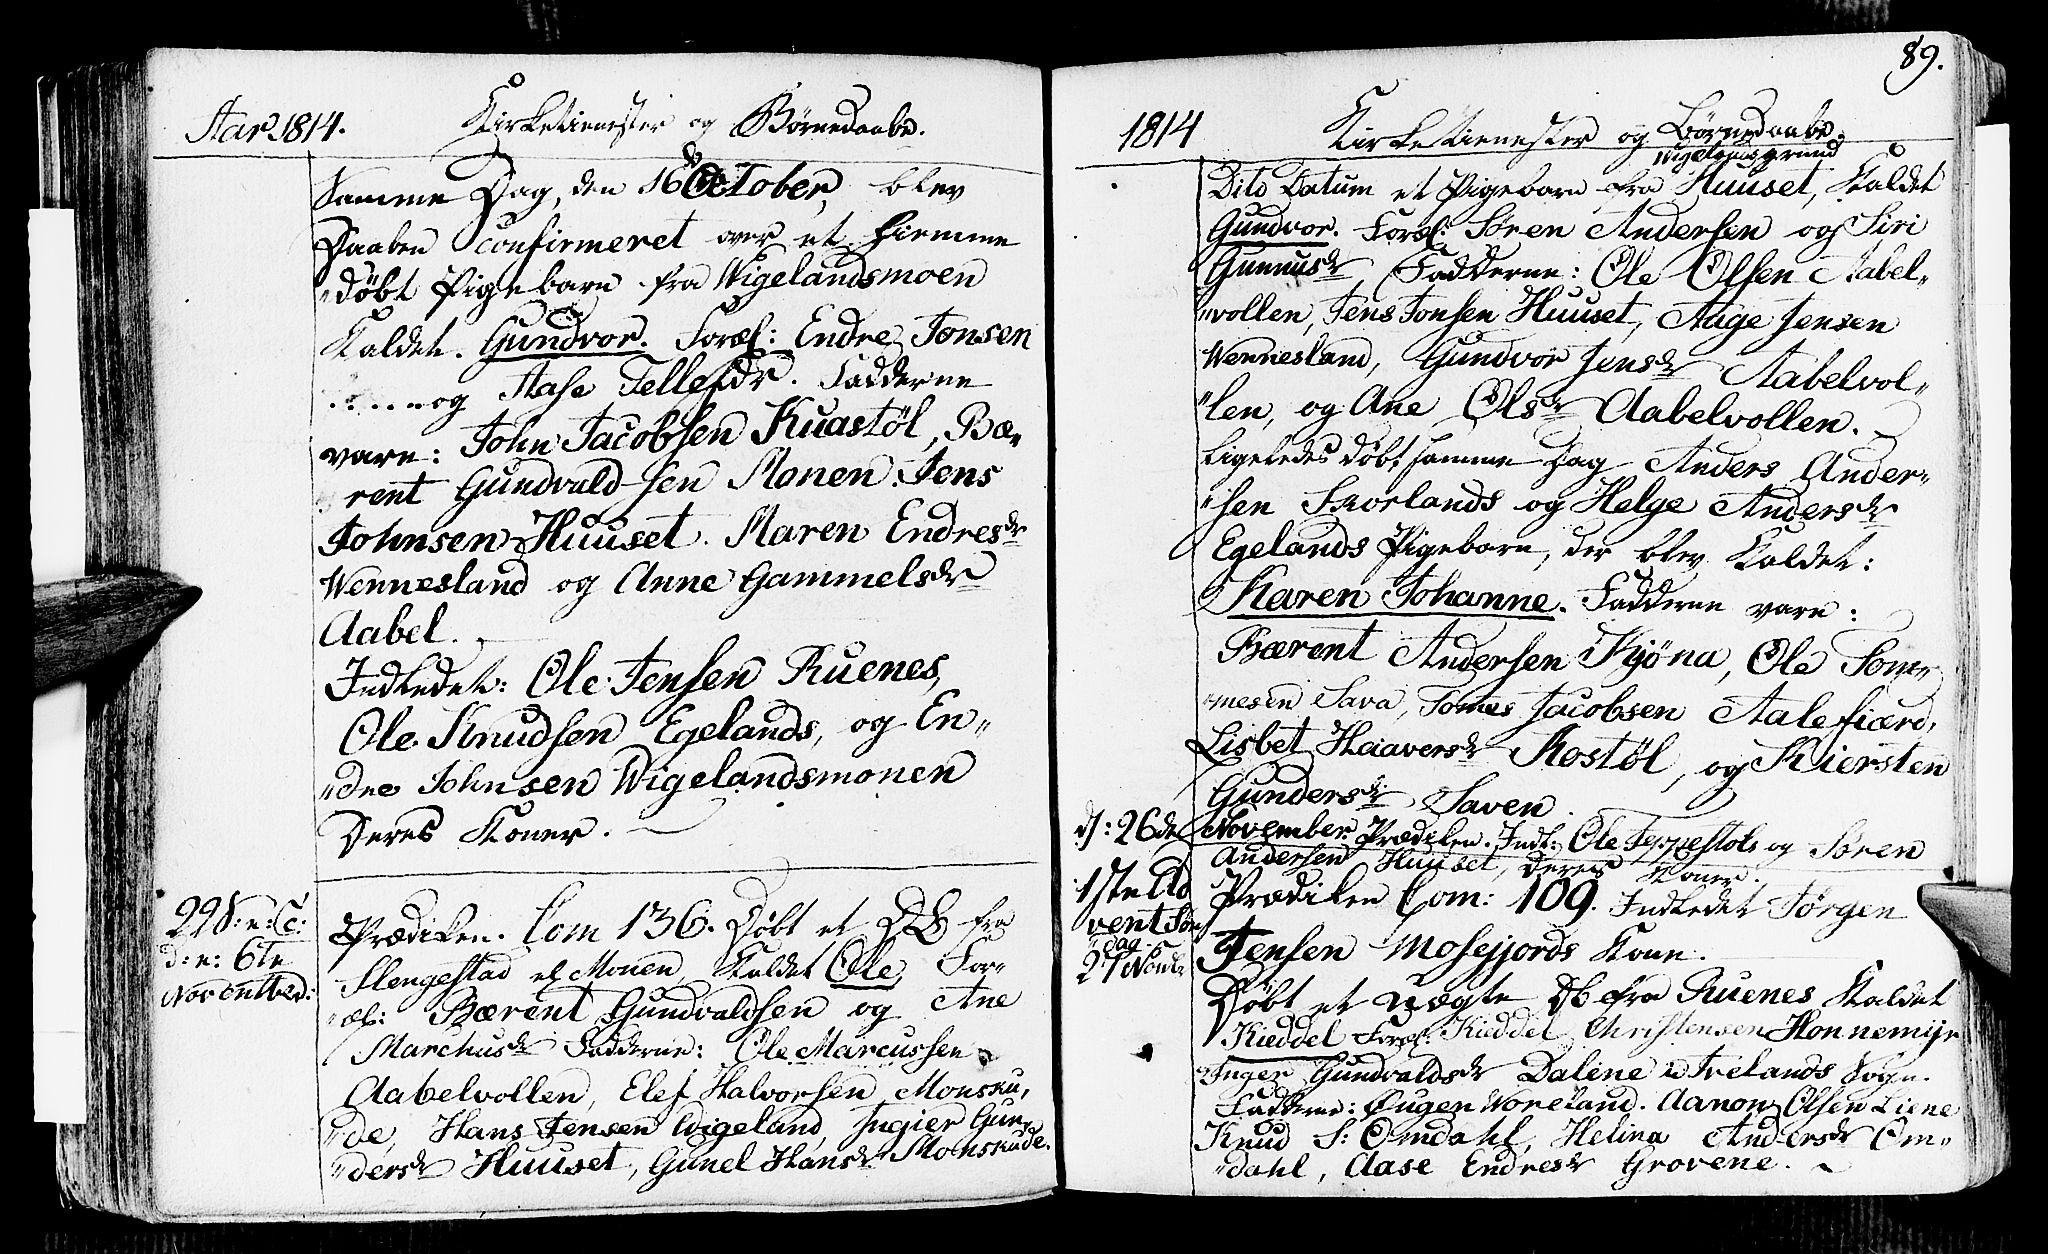 Aar 1814. Kirketienester og Børnedaabe.
Samme Dag, den 16 October, blev
Daaben confirmeret over et hiemme
døbt Pigebarn fra Wigelandsmoen
Kaldet. Gundvor. Foræl: Endre Jonsen
og Aase Tellefdr. Fadderne
vare: John Jacobsen Kuastøl, Bæ„
rent Gundvaldsen Monen. Jens
Johnsen Huuset. Maren Endresdr
Wennesland og Anne Gammelsdr
Aabel.
Indledet: Ole Jensen Ruenes,
Ole Knudsen Egelands, og En„
„dre Johnsen Wigelandsmonen
Deres Koner.
22 S: e: T:
d: e: 6te
Novembr:
Prædiken. Com 136. Døbt et DB fra
Slengestad el Monen, Kaldet Ole, For„
„æl: Bærent Gundvaldsen og Ane
Marchusdr Fadderne: Ole Marcussen
Aabelvollen, Elef Halvorsen Monsku„
„de, Hans Jensen Wigeland, Ingier Gun„
„dersdr Huuset, Gunel Hansdr Monskude.
89.
1814 Kirketienester og Børnedaabe.
Wigelandsgrund
Dito Datum et Pigebarn fra Huuset, Kaldet
Gundvor. Foræl: Søren Andersen og Siri
Gunnusdr Fadderne: Ole Olsen Aabel„
„vollen, Jens Jonsen Huuset, Aage Jensen
Wennesland, Gundvor Jensdr Aabelvol„
„len, og Ane Olsdr Aabelvollen.
Ligeledes døbt samme Dag Anders Ander„
„sen Skorlands og Helge Andersdr
Egelands Pigebarn, der blev Kaldet:
Karen Johanne. Fadderne vare:
Bærent Andersen Kjöna, Ole Tom„
„mesen Sava, Tomes Jacobsen Aalefiærd,
Lisbet Haaversdr Rostøl, og Kiersten
Gundersdr Saven.
d: 26de November Prædiken. Indl: Ole Teppestøls og Søren
Andersen Huuset, deres Koner.
1ste Ad
vent Søn
„dag
27 Novbr
Prædiken Com: 109. Indledet Jörgen
Jensen Mosejjords Kone.
Døbt et uægte Db fra Ruenes Kaldet
Kieddel Foræl: Kieddel Christensen Honnemijr
Inger Gundvaldsdr Dalene i Ivelands Sogn.
Fadderne: Øugen Woreland. Aanon Olsen Liene
Knud S: Omdahl, Helina Andersdr Om„
„dahl, Aase Endresdr Grovene.